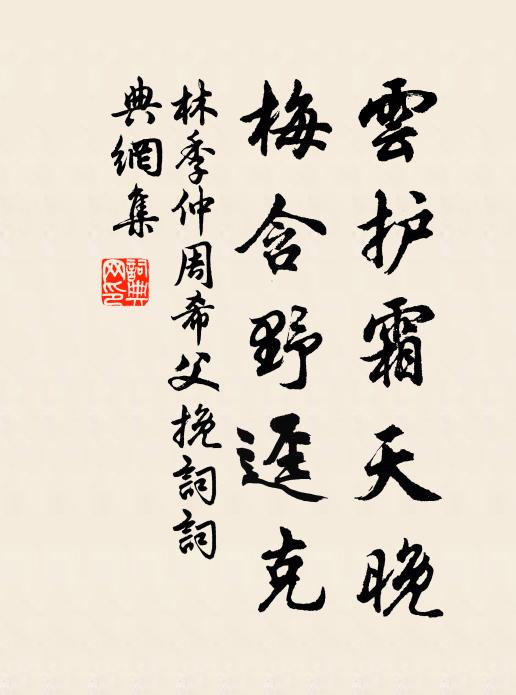 雲护霜天晚
梅含野逕克
林季仲周希父挽詞詞
典網集
詞典
网印